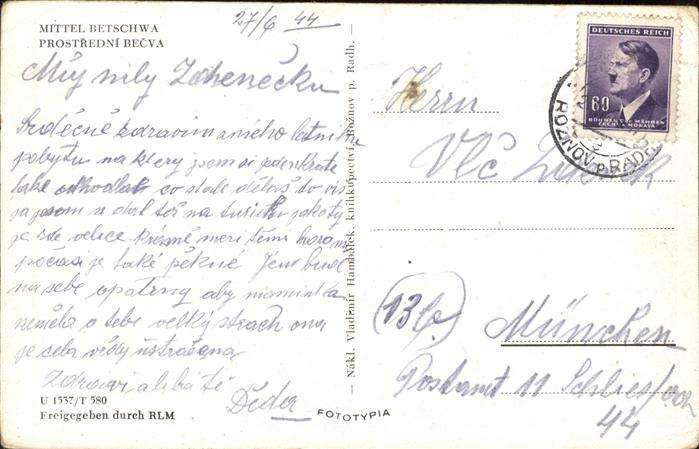 27/6 44
MITTEL BETSCHWA
PROSTŘEDNÍ BEČVA
Můj milý Zdenečku
Srdečně zdravím a mého letního
pobytu na který jsem si jedenkráte
také odhodlal co stale děláš to víš
ja jsem si dal též na turistiku jakoty
je zde velice krásně mezi těmi horami
počasí je také pěkné Jen buď
na sebe opatrný aby maminka
neměla o tebe velký strach ona
je celá vždy ustrašena
Zdraví a líbá tě
Děda
U 1537/T 580
Freigegeben durch RLM
FOTOTYPIA
Nákl. Vladimír Hambálek, knihkupectví, Rožnov p. Radh.
DEUTSCHES REICH
60
BÖHMEN U. MÄHREN
ČECHY A MORAVA
ROŽNOV P. RADH
Herrn
Vlč Zdeněk
(13b)
München
Postamt 11 Schliesfach
44